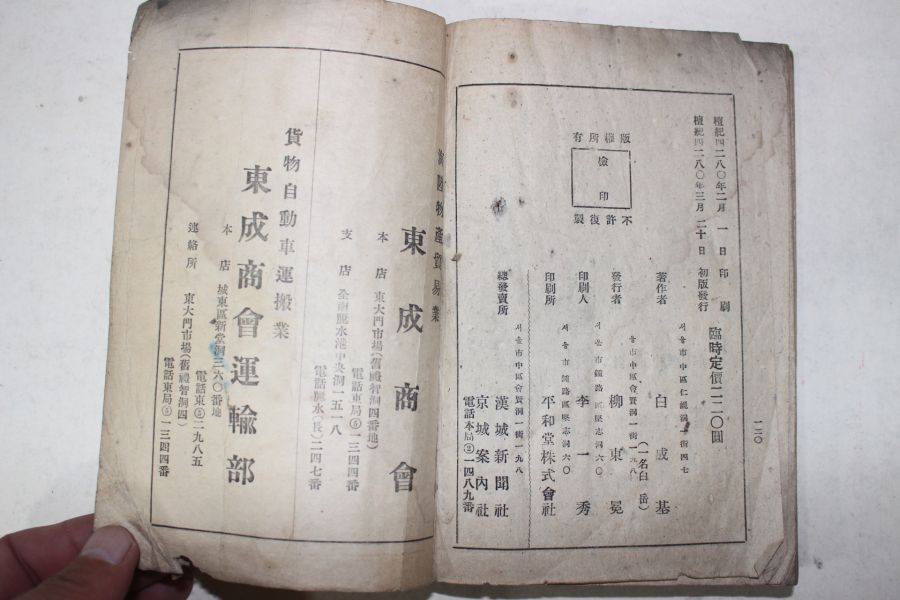 檀紀四二八〇年二月 一 日 印 刷
檀紀四二八〇年三月 二十 日 初版發行
臨時定價二二〇圓
版權所有
檢印
不許復製
著作者 서울市中區仁峴洞一街四七
白 成 基
(一名白 岳)
發行者 서울市中區會賢洞一街一九八
柳 東 冕
印刷人 서울市鍾路區堅志洞六〇
李 一 秀
印刷所 서울市鍾路區堅志洞六〇
平和堂株式會社
總發賣所 서울市中區會賢洞一街一九八
漢城新聞社
京城案內社
電話本局②一四八九番
一二〇
物産貿易業
東成商會
本店 東大門市場(舊禮智洞四番地)
電話東局⑤一三四四番
支店 全南麗水港中央洞一五一八
電話麗水(長)二四七番
貨物自動車運搬業
東成商會運輸部
本店 城東區新堂洞三六〇番地
電話東⑤二九八五
連絡所 東大門市場(舊禮智洞四)
電話東局⑤一三四四番